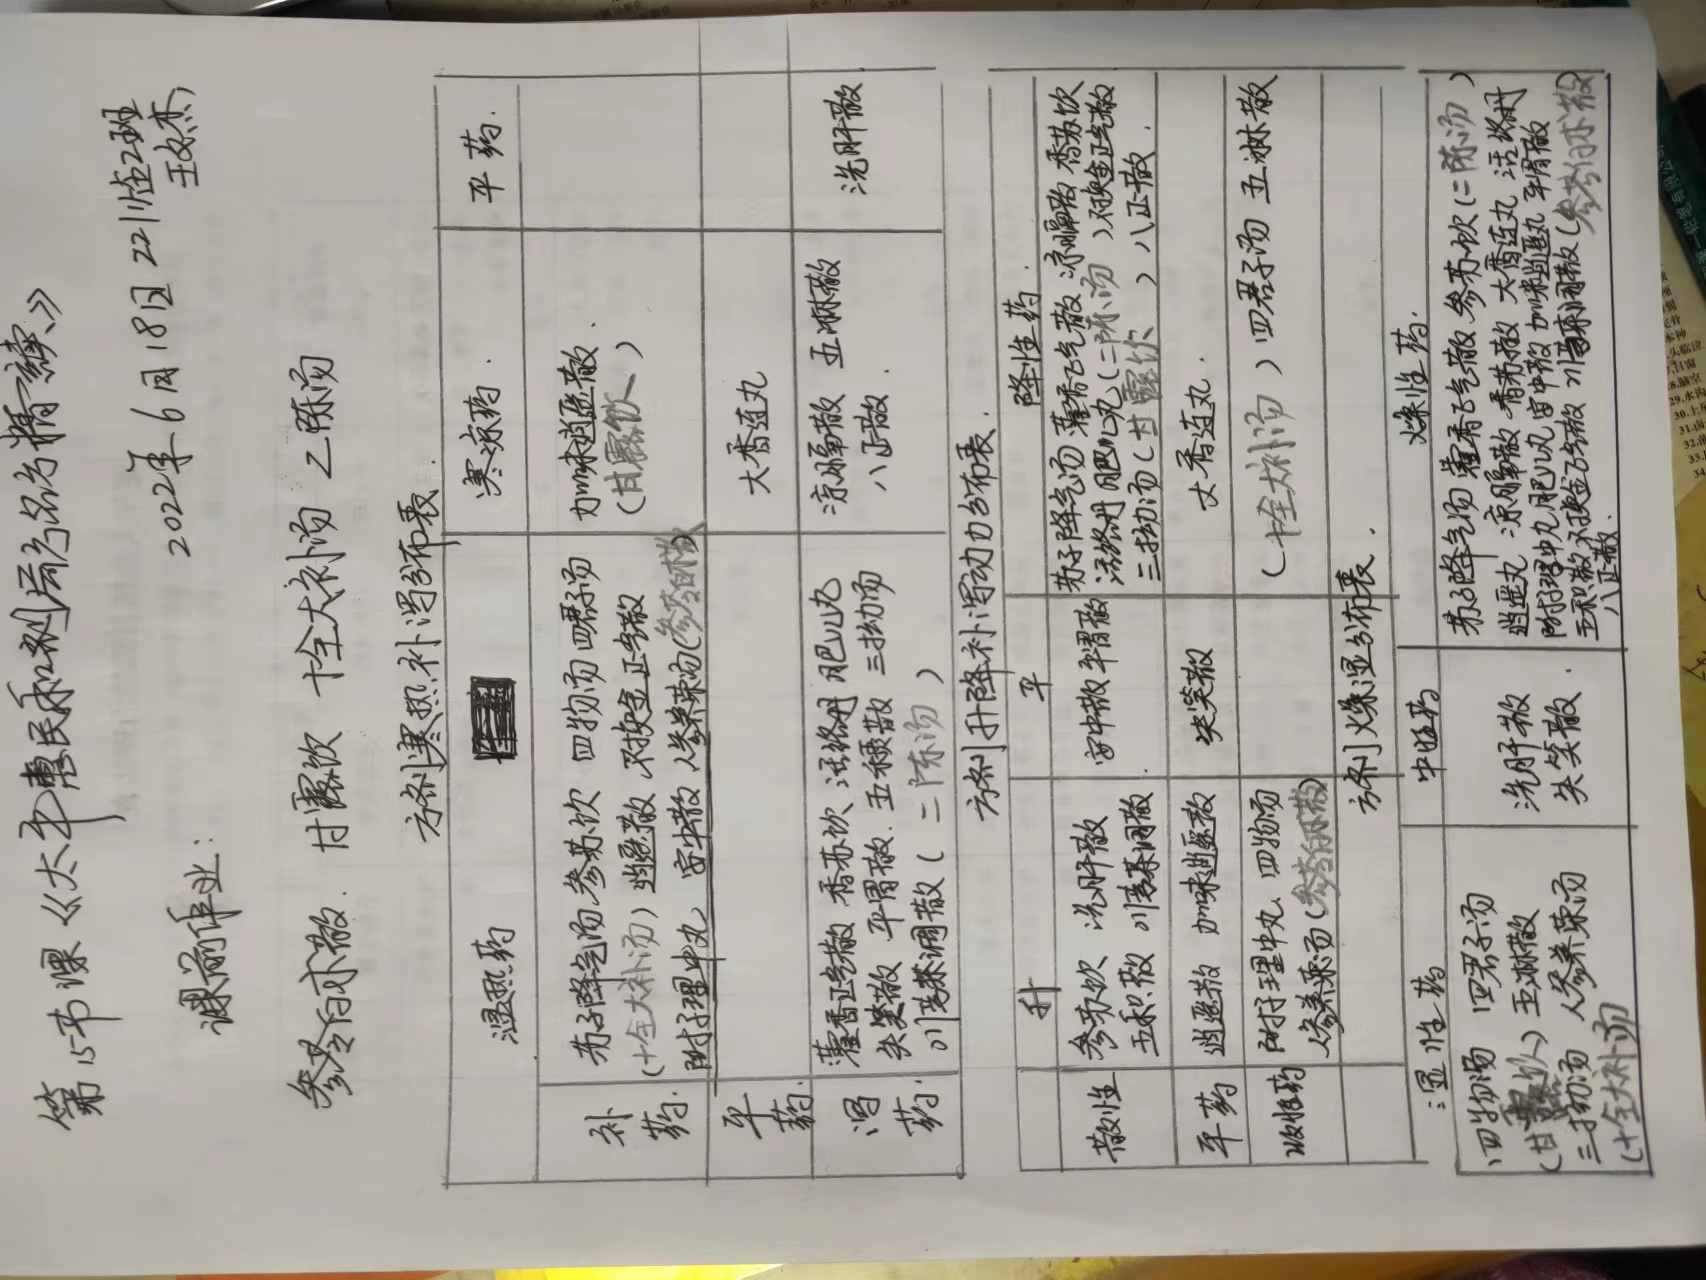 第15节课《太平惠民和剂局方名方精读》
2022年6月18日 22临2班
课前作业：
王文杰
参苓白术散. 甘露饮 十全大补汤 二陈汤
方剂寒热补泻分布表.
温热药 寒凉药. 平药.
补药. 苏子降气汤 参苏饮 四物汤 四君子汤 加味逍遥散.
(十全大补汤) 逍遥散 不换金正气散 (甘露饮)
附子理中丸 安中散 人参养荣汤(参苓白术散)
平药. 大香连丸
泻药. 藿香正气散 香苏饮 活络丹 肥儿丸 凉膈散 五淋散 洗肝散
失笑散 平胃散. 五积散 三拗汤 八正散.
川芎茶调散(二陈汤)
方剂升降补泻动力分布表.
升 平 降性药.
散性 参苏饮 洗肝散 安中散 平胃散 苏子降气汤 藿香正气散 凉膈散 香苏饮
五积散 川芎茶调散 活络丹 肥儿丸(二陈汤) 不换金正气散
三拗汤(甘露饮) 八正散.
平药 逍遥散 加味逍遥散 失笑散 大香连丸.
收性药 附子理中丸. 四物汤 (十全大补汤) 四君子汤 五淋散
人参养荣汤(参苓白术散)
方剂燥湿分布表.
湿性药 中性药 燥性药.
四物汤 四君子汤 洗肝散 苏子降气汤 藿香正气散 参苏饮(二陈汤)
(甘露饮) 五淋散 失笑散. 逍遥丸 凉膈散 香苏散 大香连丸 活络丹
三拗汤 人参养荣汤 附子理中丸 肥儿丸 安中散 加味逍遥丸 平胃散
(十全大补汤) 五积散 不换金正气散 川芎茶调散(参苓白术散)
八正散.